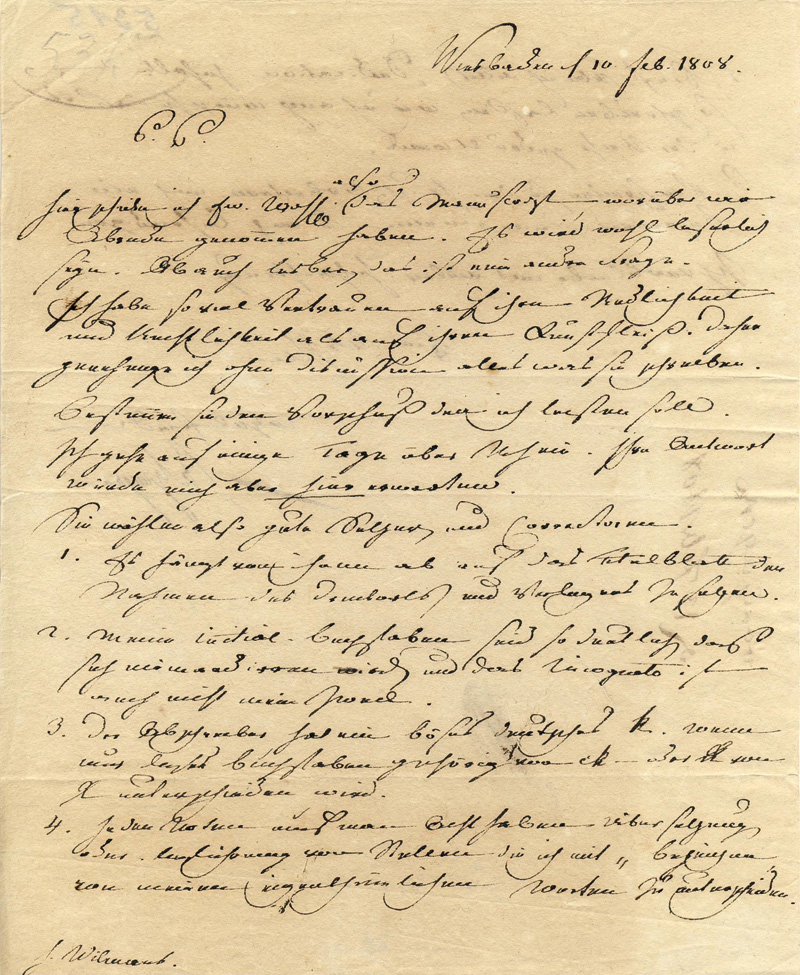 Wiesbaden d 10 feb. 1808.
P. P.
also
hier schicke ich Ew. Wohlg das Manuscript worüber wir
Abrede genommen haben. Es wird wohl leserlich
seyn. Ob auch lesbar, das ist eine andere Frage.
Ich habe so viel Vertrauen auf ihre Redlichkeit
und Rechtlichkeit als auf ihren Kunstfleiß. daher
genehmige ich ohne discussion alles was sie schreiben.
Bestimmen sie den Vorschuß den ich leisten soll.
Ich gehe auf einige Tage über Rhein. Ihre Antwort
würde mich aber hier erwarten.
Sie wählen also gute Setzer und Correctoren.
1. Es hängt von ihnen ab auf das Titelblatt den
Nahmen des Druckorts und Verlegers zu setzen.
2. Meine initial-buchstaben sind so deutlich das
sich niemand irren wird und das Incognito ist
auch nicht mein Zweck.
3. Der Abschreiber hat ein böses deutsches k. wenn
nur dieser buchstaben gehörig von ck - oder von
X unterschieden wird.
4. In den Noten muß man Acht haben Übersetzung
oder Anführung von Stellen die ich mit „ bezeichne
von meinen eigenthümlichen Worten zu unterscheiden.
H. Wilmans.